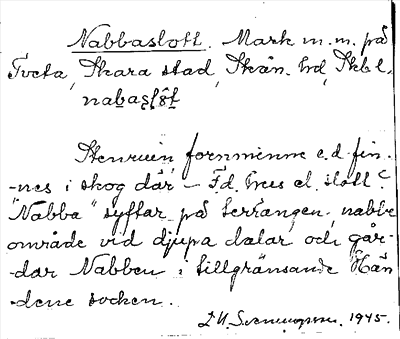 Nabbaslott. Mark m.m. på
Tveta, Skara stad, Skån. hd, Skbl.
Stenruin, fornminne e.d. fin-
-nes i skog där – F.d. hus el. slott?
"Nabba" syftar på terrängen, nabbe
område vid djupa dalar, och går-
-dar Nabben i tillgränsande Hän
-dene socken.
1945.